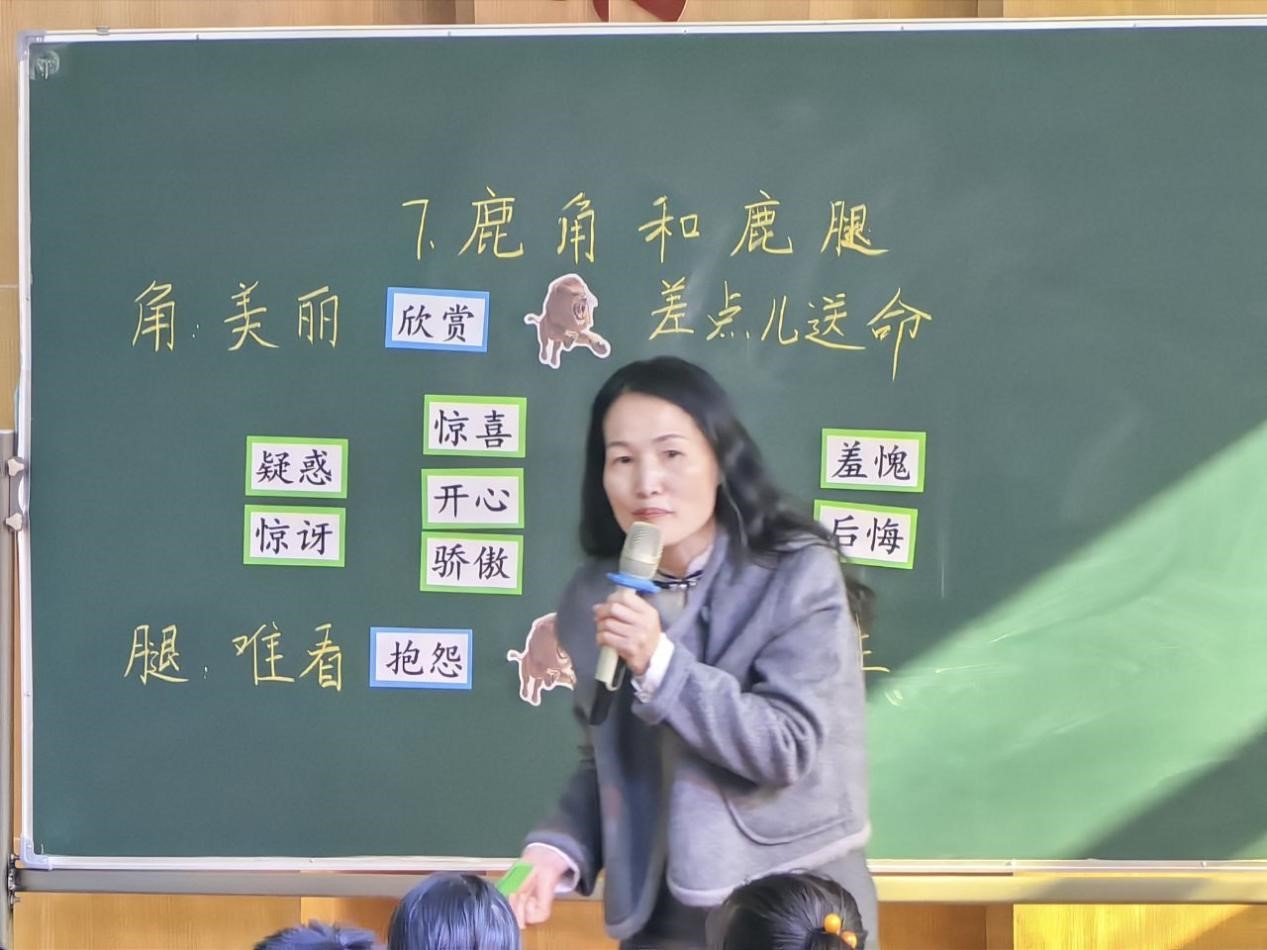 7.鹿角和鹿腿
角:美丽 欣赏 差点儿送命
惊喜
疑惑 开心 羞愧
惊讶 骄傲 后悔
腿:难看 抱怨